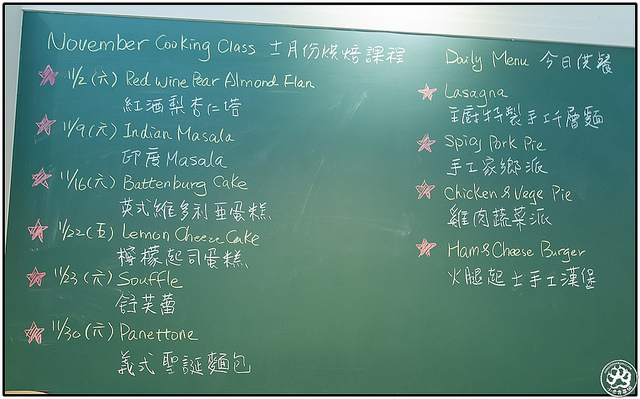 November Cooking Class 十一月份烘焙課程
11/2(六) Red wine Pear Almond Flan
紅酒梨杏仁塔
11/9(六) Indian Masala
印度Masala
11/16(六) Battenburg Cake
英式維多利亞蛋糕
11/22(五) Lemon Cheeze Cake
檸檬起司蛋糕
11/23(六) Souffle
舒芙蕾
11/30(六) Panettone
義式聖誕麵包
Daily Menu 今日供餐
Lasagna
主廚特製手工千層麵
Spicy Pork Pie
手工家鄉派
Chicken & Vege Pie
雞肉蔬菜派
Ham & Cheese Burger
火腿起士手工漢堡